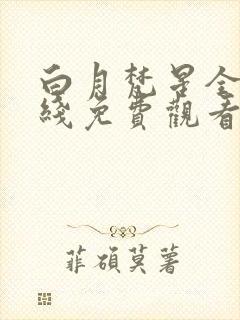 白月梵星全
綫免費觀看
菲碩莫著